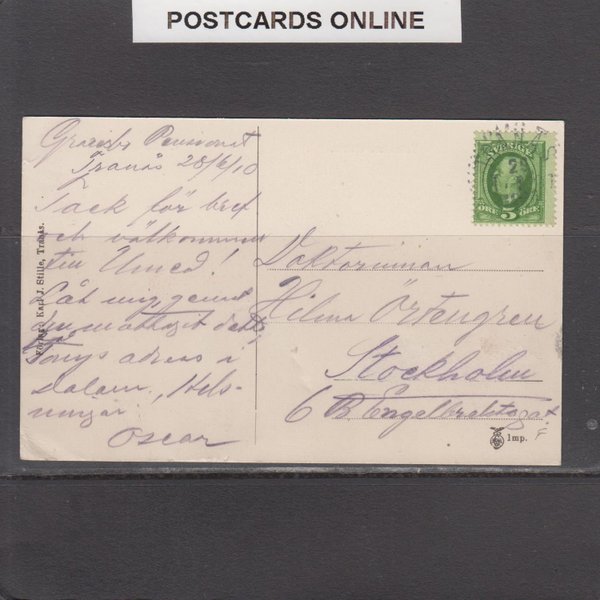 POSTCARDS ONLINE
Pensionat
Tranås 28/6 10
Tack för bref
och välkommen
till Umeå!
Låt mig genast
Tonys adress i
Dalarn. Hels-
ningar
Oscar
Förlag: Karl J. Stille, Tranås.
SVERIGE
ÖRE 5 ÖRE
Doktorinnan
Hilma Örtengren
Stockholm
6 B Engelbrektsgat.
Imp.